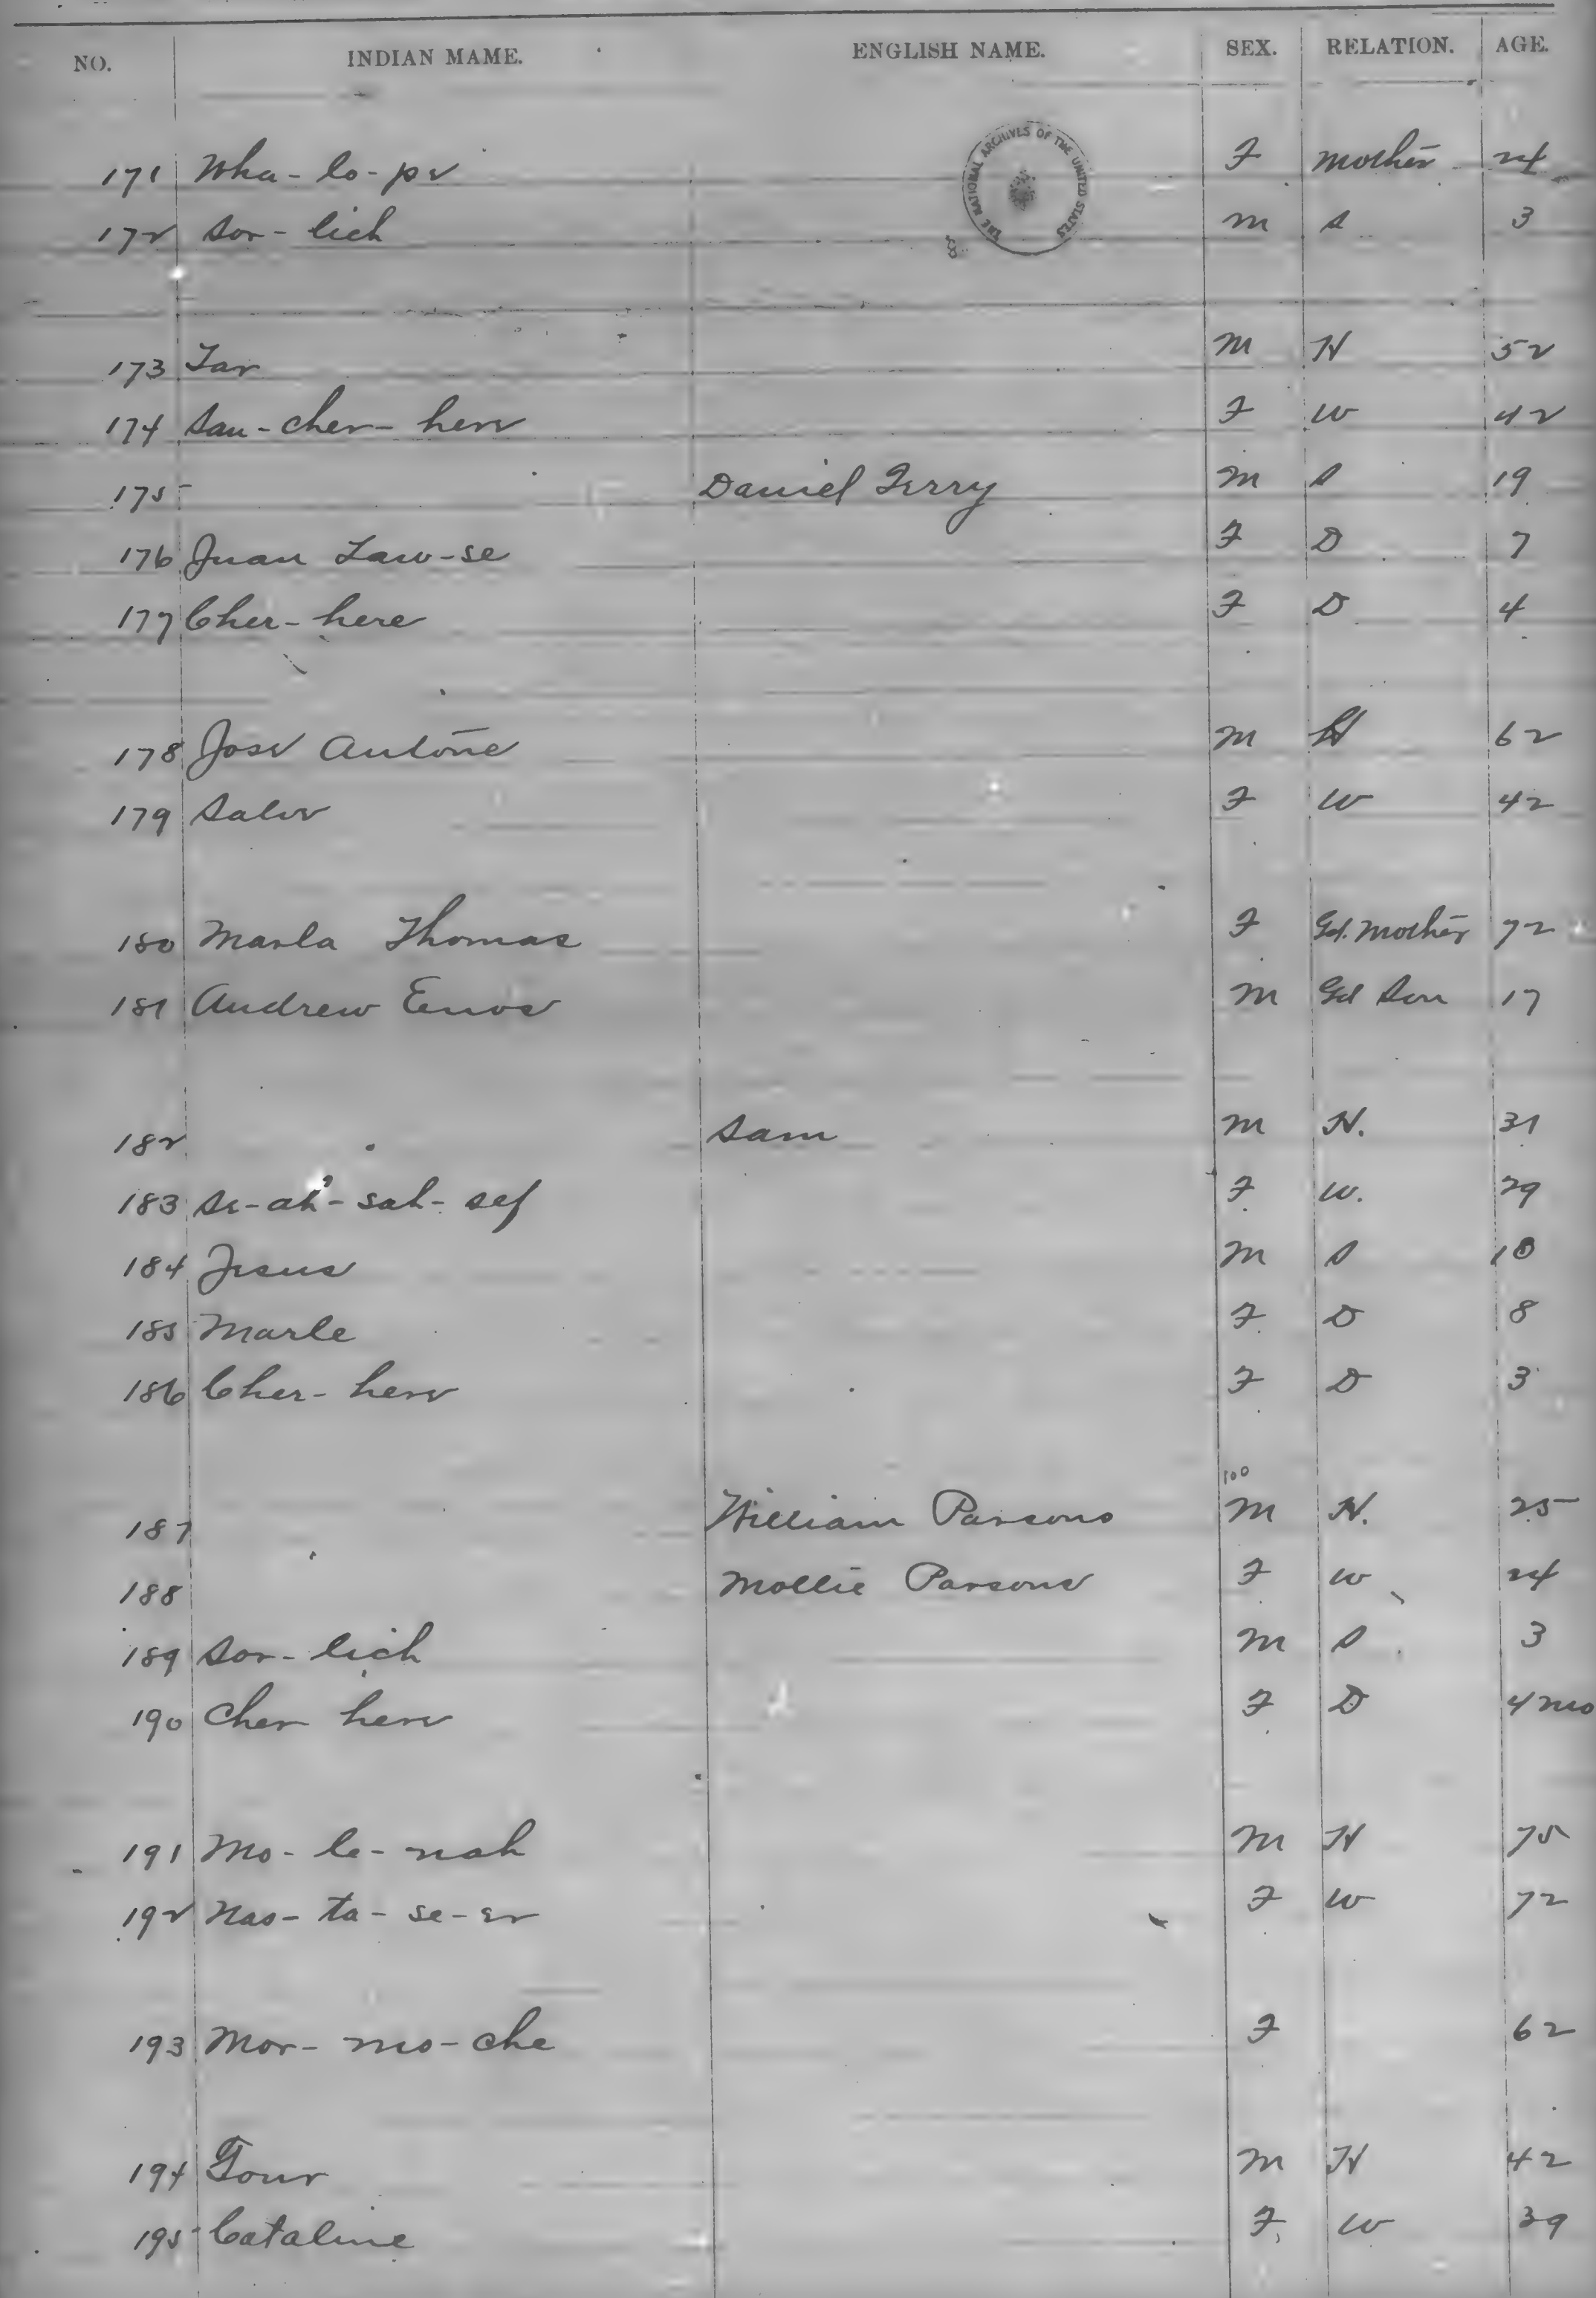 NO. INDIAN MAME. ENGLISH NAME. SEX. RELATION. AGE.
THE NATIONAL ARCHIVES OF THE UNITED STATES
171 Wha-lo-pe F Mother 24
172 Sor-lich M S 3
173 Tar M H 52
174 Sau-cher-here F W 42
175 Daniel Terry M S 19
176 Juan Law-se F D 7
177 Cher-here F D 4
178 Jose Antone M H 62
179 Salve F W 42
180 Marla Thomas F Gd. Mother 72
181 Andrew Enos M Gd Son 17
182 Sam M H. 31
183 Se-ah-sah-sef F W. 29
184 Jesus M S 10
185 Marle F D 8
186 Cher-here F D 3
100
187 William Parsons M H. 25
188 Mollie Parsons F W 24
189 Sor-lich M S 3
190 Cher here F D 4 mo
191 Mo-le-nah M H 75
192 Nas-ta-se-er F W 72
193 Mor-mo-che F 62
194 Tour M H 42
195 Cataline F W 39